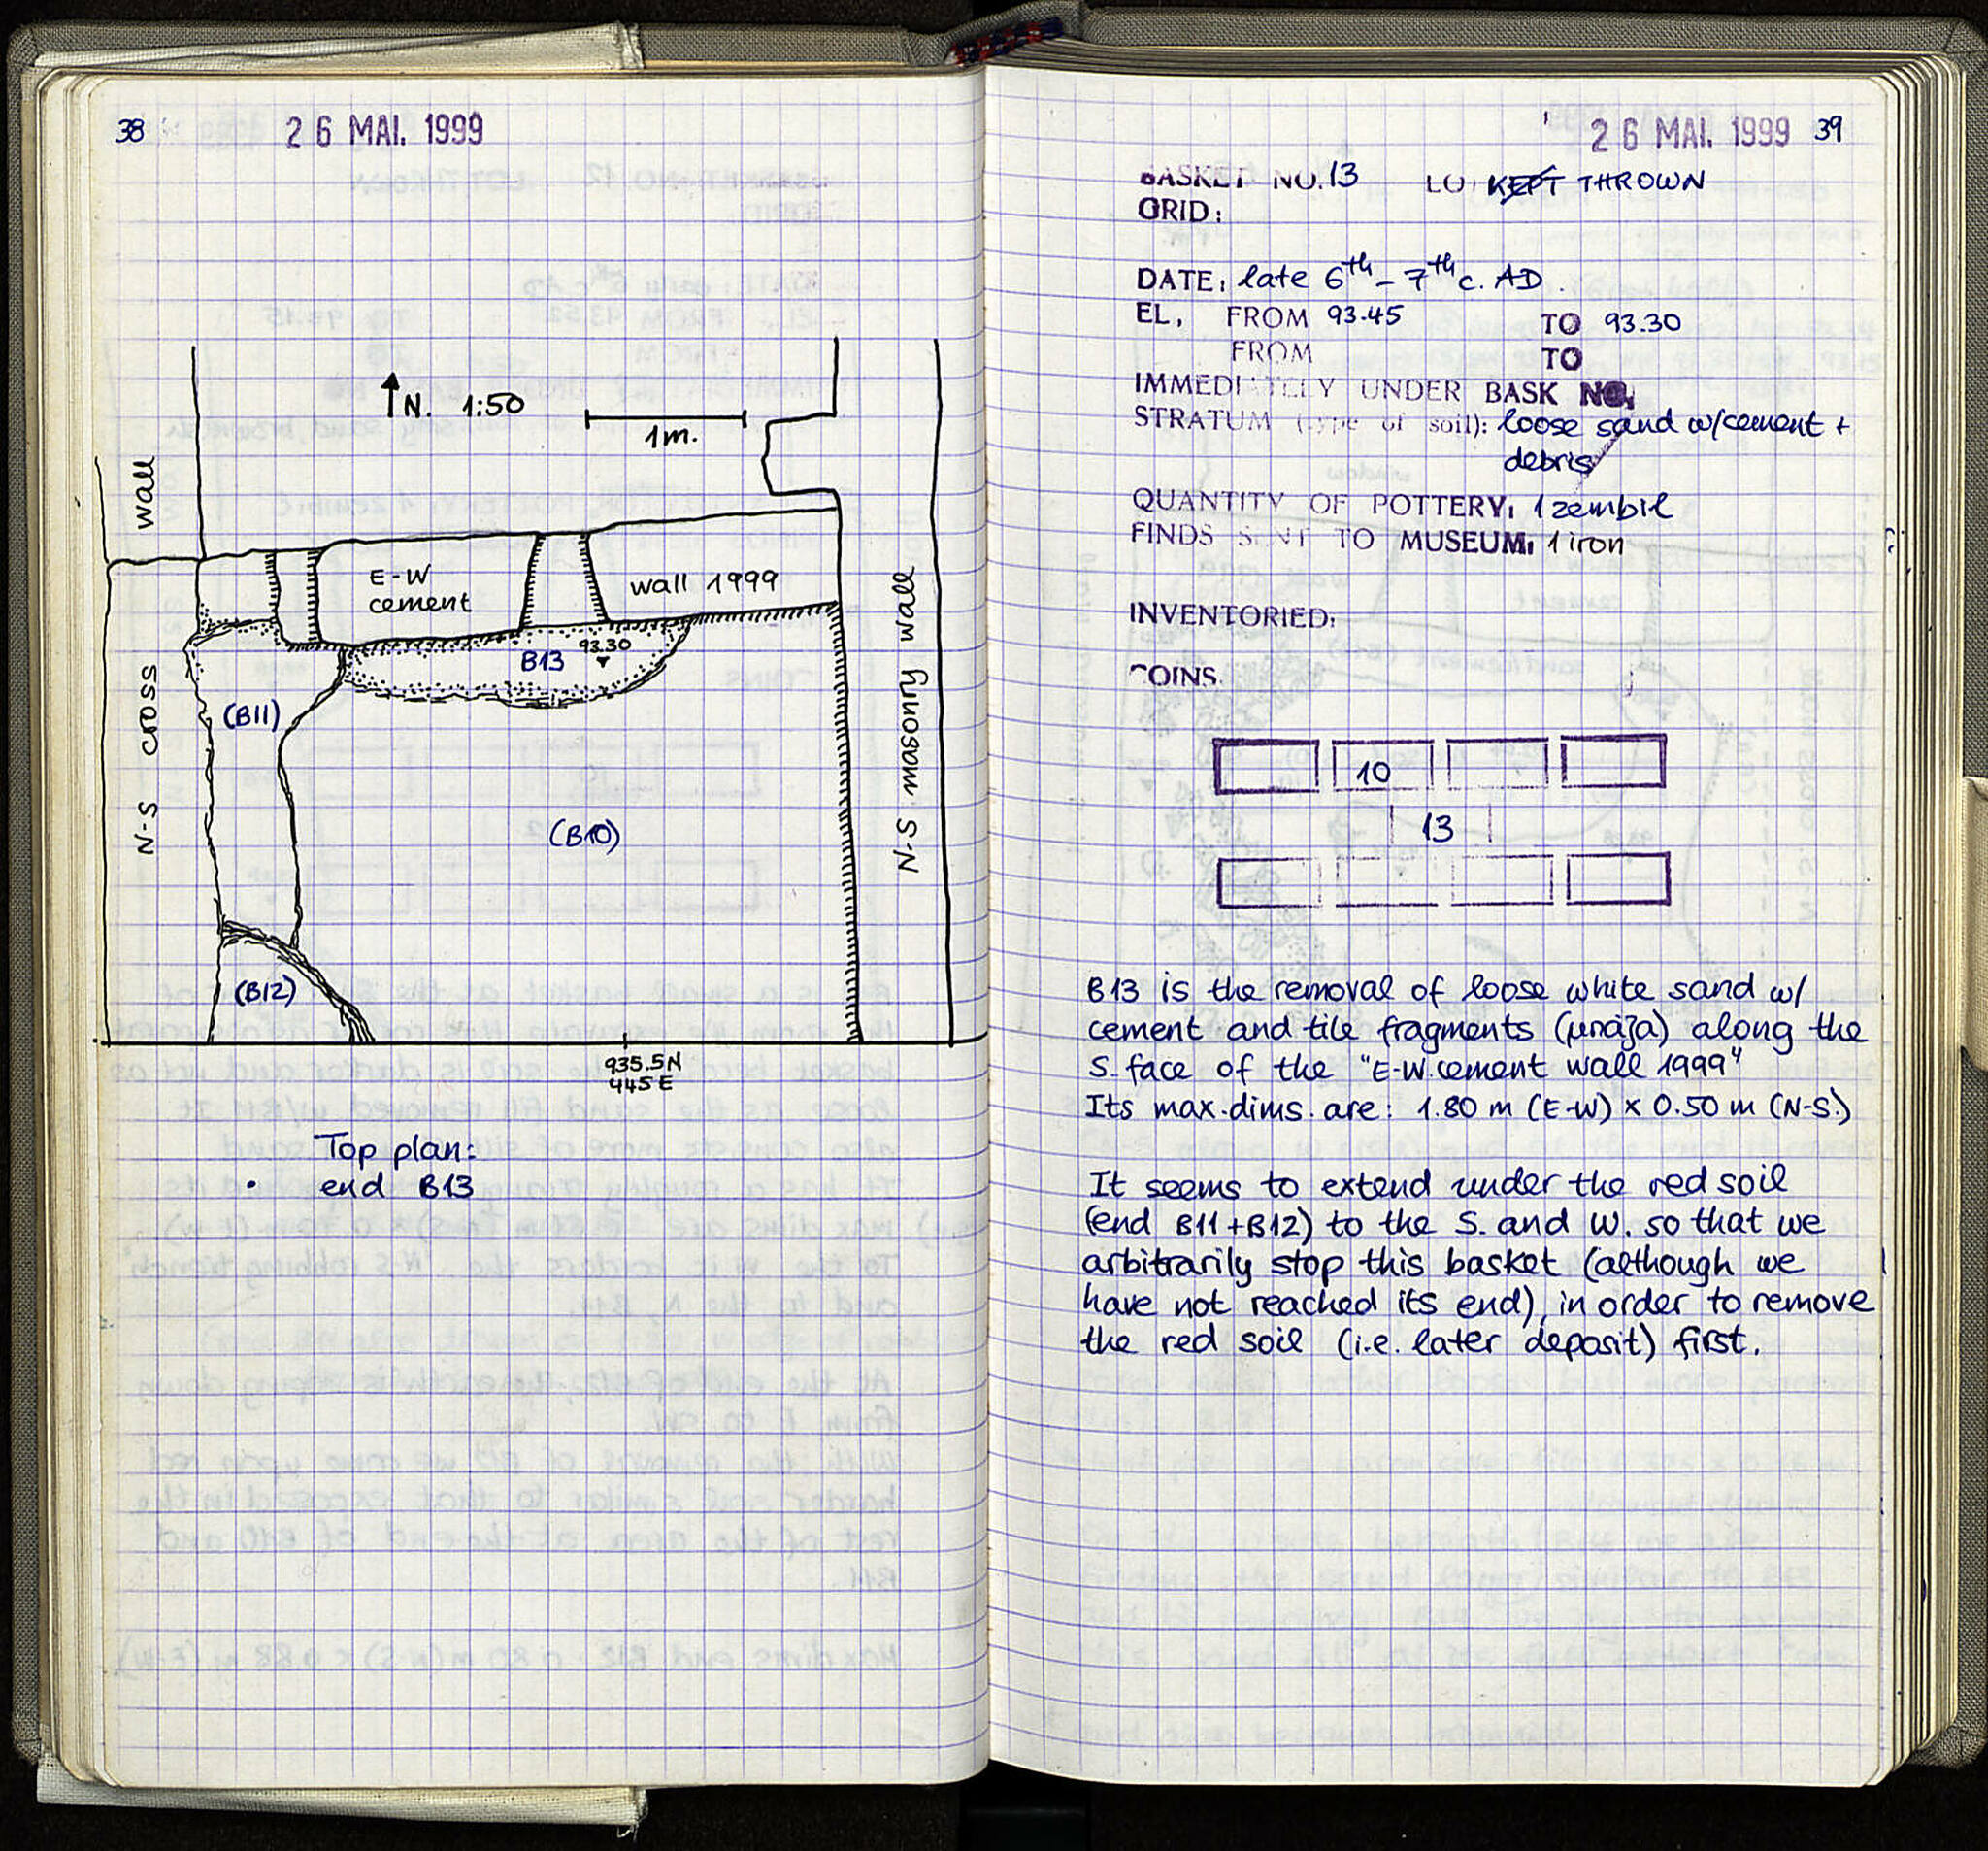 38
26 MAI. 1999
N. 1:50
1m.
wall
E-W
cement
wall 1999
93.30
B13
N-S cross
(B11)
(B10)
N-S masonry wall
(B12)
935.5N
445E
Top plan:
• end B13
26 MAI. 1999 39
BASKET NO. 13 LOT KEPT THROWN
GRID:
DATE: late 6th - 7th c. AD.
EL. FROM 93.45 TO 93.30
FROM TO
IMMEDIATELY UNDER BASK NO.
STRATUM (type of soil): loose sand w/cement +
debris
QUANTITY OF POTTERY: 1 zembil
FINDS SENT TO MUSEUM: 1 iron
INVENTORIED:
COINS
10
13
B13 is the removal of loose white sand w/
cement and tile fragments (μπάζα) along the
S. face of the "E-W. cement wall 1999"
Its max. dims. are: 1.80 m (E-W) x 0.50 m (N-S.)
It seems to extend under the red soil
(end B11+B12) to the S. and W. so that we
arbitrarily stop this basket (although we
have not reached its end), in order to remove
the red soil (i.e. later deposit) first.